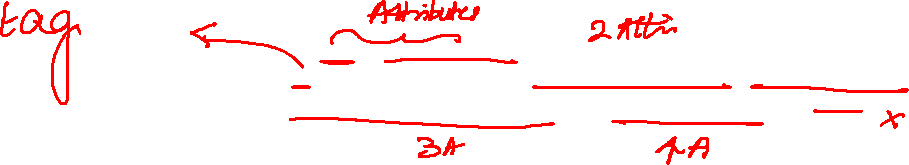 tag Attributes 2 Attri
3A 4A x